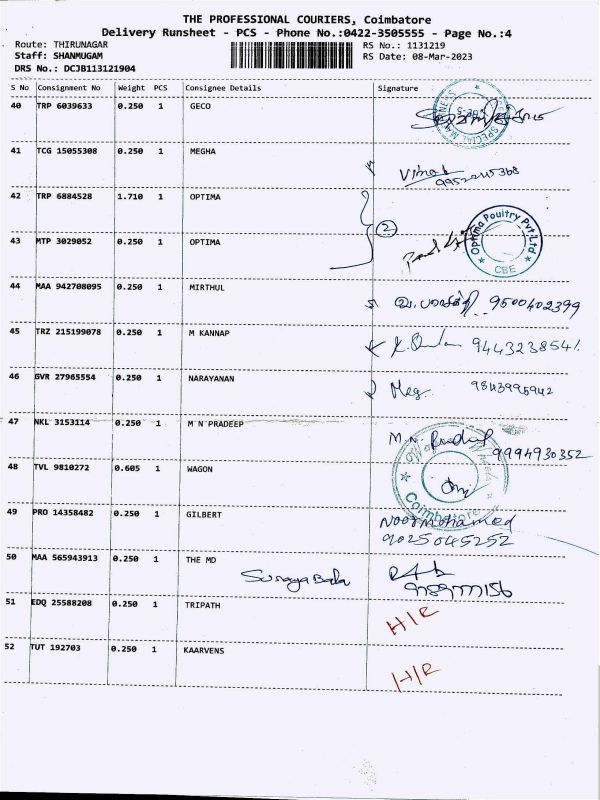 THE PROFESSIONAL COURIERS, Coimbatore
Delivery Runsheet - PCS - Phone No.:0422-3505555 - Page No.:4
Route: THIRUNAGAR RS No.: 1131219
Staff: SHANMUGAM RS Date: 08-Mar-2023
DRS No.: DCJB113121904
S No Consignment No Weight PCS Consignee Details Signature
40 TRP 6039633 0.250 1 GECO
SPECIAL MACHINES
41 TCG 15055308 0.250 1 MEGHA
42 TRP 6884528 1.710 1 OPTIMA
43 MTP 3029052 0.250 1 OPTIMA
2
Optima Poultry Pvt.Ltd
CBE
44 MAA 942708095 0.250 1 MIRTHUL
9500402399
45 TRZ 215199078 0.250 1 M KANNAP
46 GVR 27965554 0.250 1 NARAYANAN
Meg 9843995942
47 NKL 3153114 0.250 1 M N PRADEEP
M.N. Pradeep
9994930352
48 TVL 9810272 0.605 1 WAGON
Coimbatore
49 PRO 14358482 0.250 1 GILBERT
Noormohamed
9025045252
50 MAA 565943913 0.250 1 THE MD
51 EDQ 25588208 0.250 1 TRIPATH
H/R
52 TUT 192703 0.250 1 KAARVENS
H/R